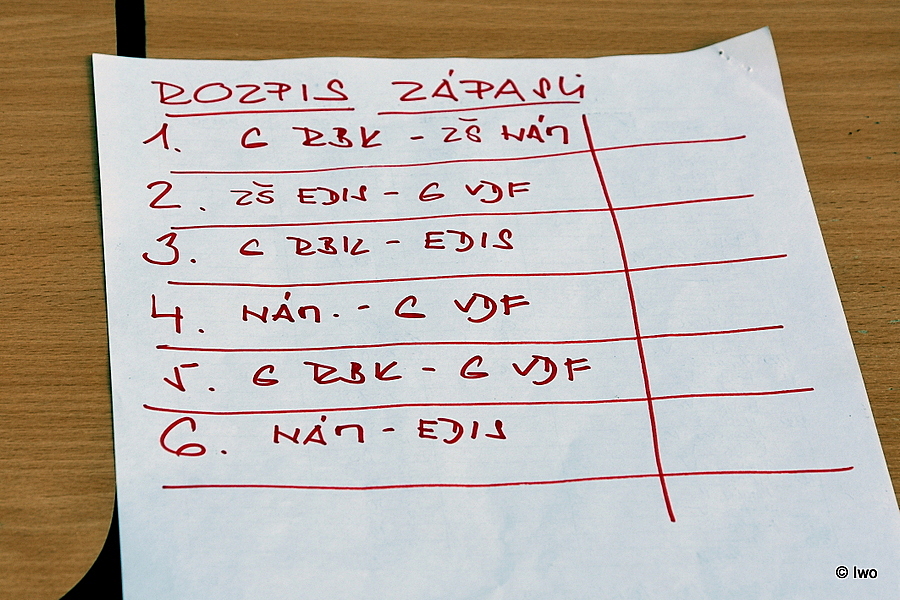 ROZPIS ZÁPASŮ
1. G RBK - ZŠ NÁM
2. ZŠ EDIS - G VDF
3. G RBK - EDIS
4. NÁM. - G VDF
5. G RBK - G VDF
6. NÁM - EDIS
© Iwo